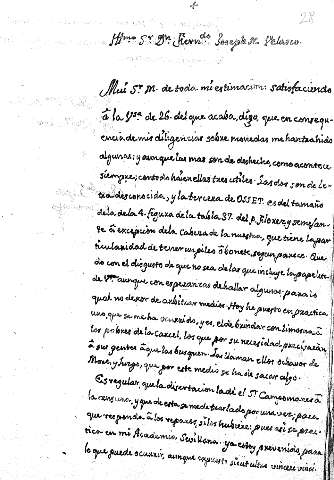 28
Yllmo Sr Dn Ferndo Joseph de Velasco
Mui Sr M. de toda mi estimacion: satisfaciendo
â la Vsa de 26. del que acaba, digo, que en consequ
encia de mis diligencias sobre monedas me han trahido
algunas; y aunque las mas son de deshecho, como acontece
siempre; con todo hai en ellas tres utiles. Las dos son de le-
tra desconocida, y la tercera de OSSET. es del tamaño
de la de la 4. figura de la tabla 37. del P. Florez, y semejan-
te â excepcion de la cabeza de la nuestra, que tiene la par-
ticularidad de tener un pileo ô bonete, segun parece. Que
do con el disgusto de que no sea de las que incluye la papeleta
de Vm aunque con esperanzas de hallar algunas, para lo
qual no dexo de arbitrar medios. Hoy he puesto en practica
uno, que se me ha ocurrido, y es, el de brindar con limosna â
los pobres de la Carcel, los que por su necesidad precisarán
â sus gentes â que las busquen. Las llaman ellos ochavos de
Moro, y juzgo, que por este medio se ha de sacar algo.
Es regular, que la disertacion la dé el Sr Campomanes â
la censura, y que de esta se me dé traslado por una vez, para
que responda â los reparos, si los hubiere: pues asi se prac-
tica en mi Academia Sevillana. ya estoy prevenido para
lo que puede ocurrir, aunque